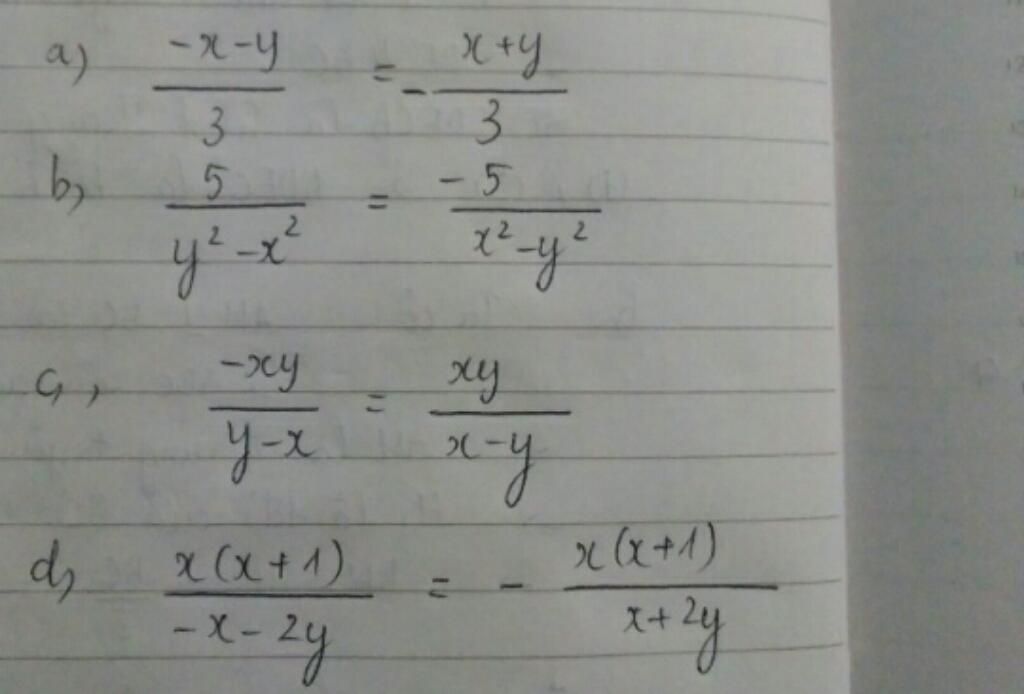 a) \frac{-x-y}{3} = -\frac{x+y}{3}
b, \frac{5}{y^2-x^2} = \frac{-5}{x^2-y^2}
c, , \frac{-xy}{y-x} = \frac{xy}{x-y}
d, \frac{x(x+1)}{-x-2y} = -\frac{x(x+1)}{x+2y}